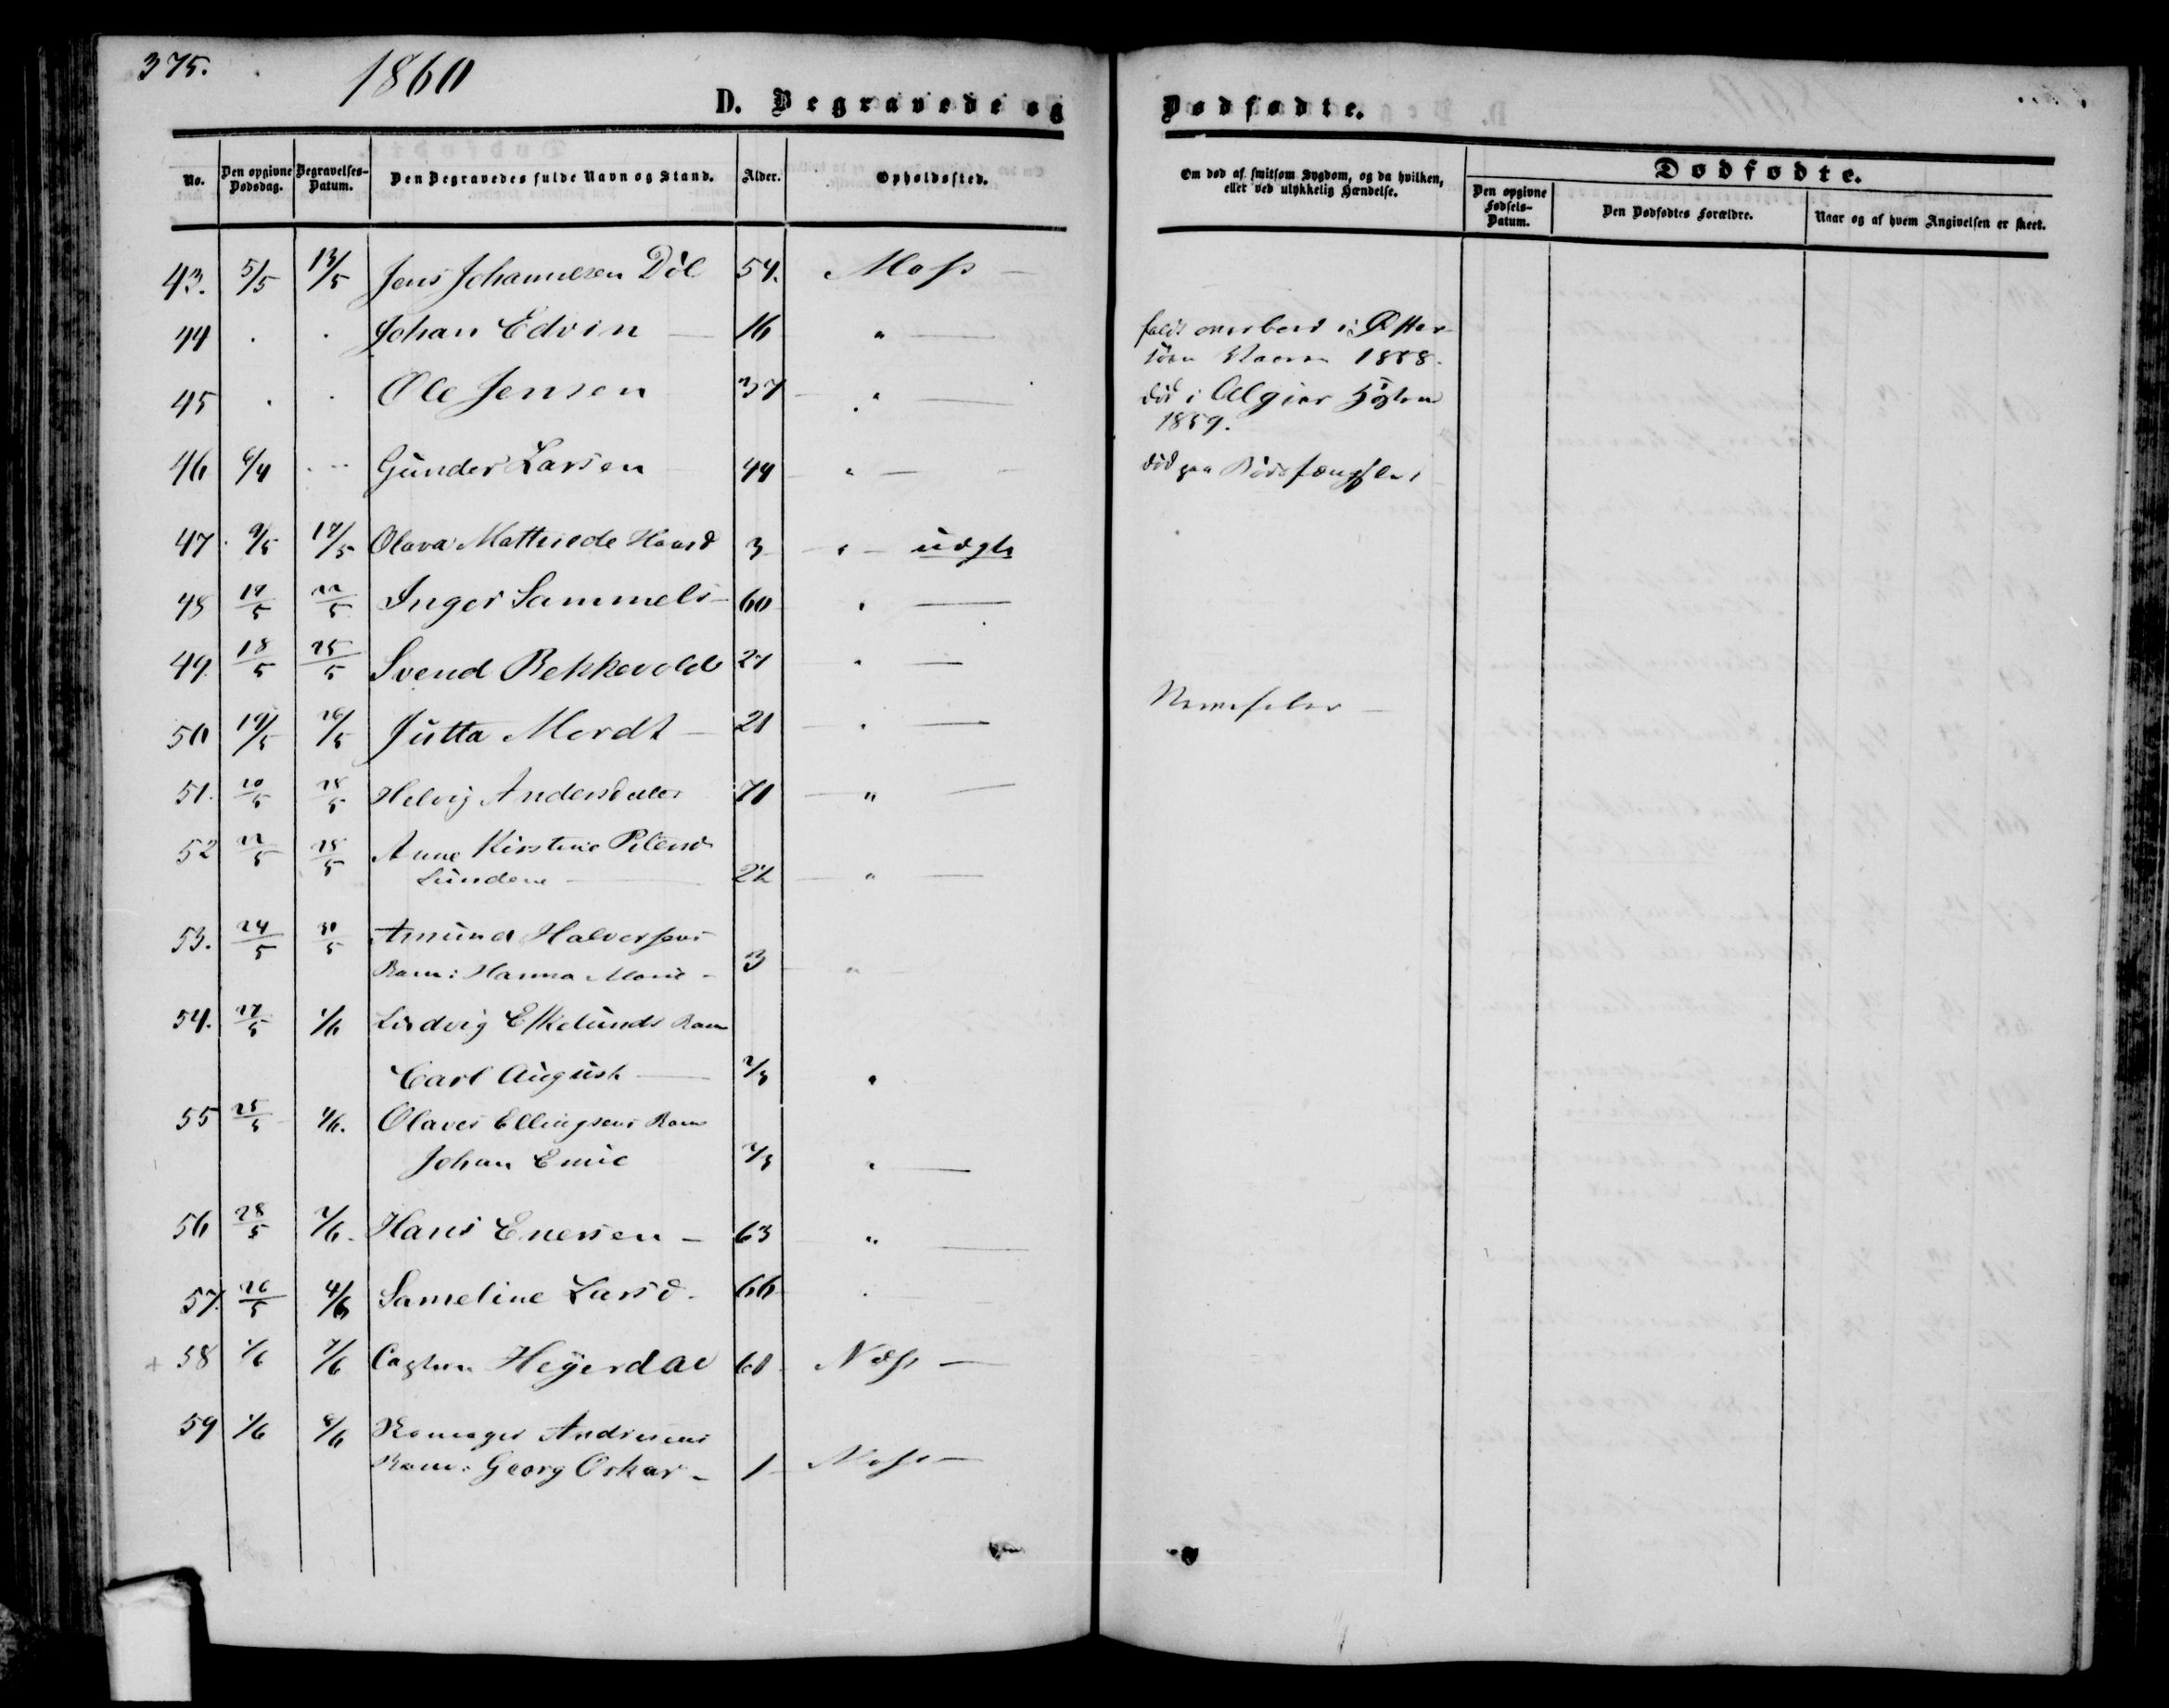 375.
1860
D. Begravede og Dødfødte.
No. Den opgivne Dødsdag. Begravelses-Datum. Den Begravedes fulde Navn og Stand. Alder. Opholdssted. Om død af smitsom Sygdom, og da hvilken, eller ved ulykkelig Hændelse. Dødfødte.
Den opgivne Fødsels-Datum. Den Dødfødtes Forældre. Naar og af hvem Angivelsen er skeet.
43. 5/5 13/5 Jens Johannesen Döl 54. Moss —
44 . . Johan Edvin — 16 " — faldt overbord i Öster-
söen 1858.
45 . . Ole Jensen 37 — " — död i Algier Hösten
1859.
46 6/4 . Gunder Larsen 44 — " — död paa Bodsfængslet
47. 9/5 17/5 Olava Mathilde 3 — " — udgls
48 14/5 22/5 Inger Sammels — 60 " —
49. 18/5 25/5 Svend Bekkevold 21 " —
50 19/5 26/5 Jutta — 21 — " —
51. 20/5 28/5 Helvig Andersdatter 71 — " —
52 22/5 28/5 Anne Kirstine Petersd
Lundene — 22 — " —
53. 24/5 31/5 Amund Halversens
Barn: Hanna Marie — 3 — "
54. 27/5 1/6 Ludvig Eskelunds Barn
Carl August — 2/3 "
55 25/5 1/6. Olaves Ellingsens Barn
Johan Emil 2/3 " —
56 28/5 2/6. Hans Enersen — 63 — " —
57. 26/5 4/6 Sameline Larsd. 66 .
+ 58 1/6 7/6 Heyerdal 61 Næss —
59 1/6 8/6 Andresens
Barn: Georg Oskar — 1 — Moss —